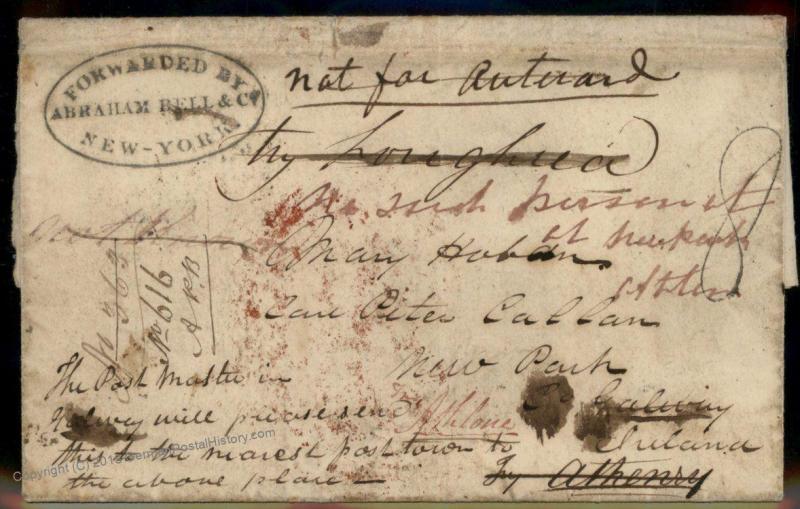 FORWARDED BY
ABRAHAM BELL & Co
NEW-YORK
not for Outward
try Loughrea
8
No such person at
at New Park
Athlone
Mary Hoban
Care Peter Callan
New Park
Co Galway
Ireland
Athlone
Try Athenry
No 616
The Post Master in
Galway will please send
this to the nearest post town to
the above place —
Copyright (C) GermanyPostalHistory.com